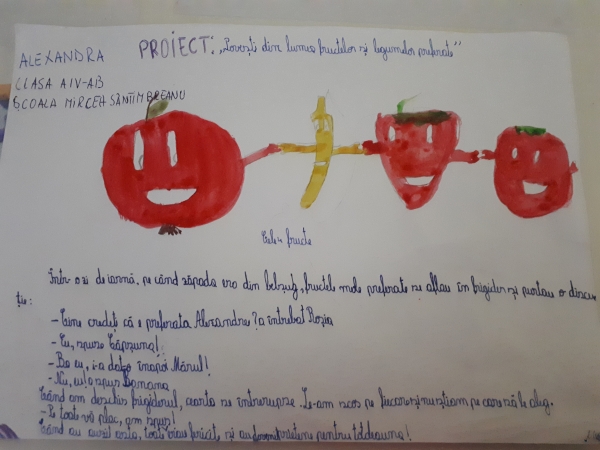 ALEXANDRA
PROIECT: „Povești din lumea fructelor și legumelor preferate"
CLASA A IV-A B
ȘCOALA MIRCEA SÂNTIMBREANU
Cele 4 fructe
Într-o zi de iarnă, pe când zăpada era din belșug, fructele mele preferate se aflau în frigider și purtau o discu-
ție:
- Cine credeți că e preferata Alexandrei? a întrebat Roșia
- Eu, spuse Căpșuna!
- Ba eu, i-a dat-o înapoi Mărul!
- Nu, eu! a spus Banana
Când am deschis frigiderul, cearta se întrerupse. Le-am scos pe fiecare și nu știam pe care să le aleg.
- Pe toate vă plac, am spus!
Când au auzit asta, toate erau fericite, și au fost prietene pentru totdeauna!